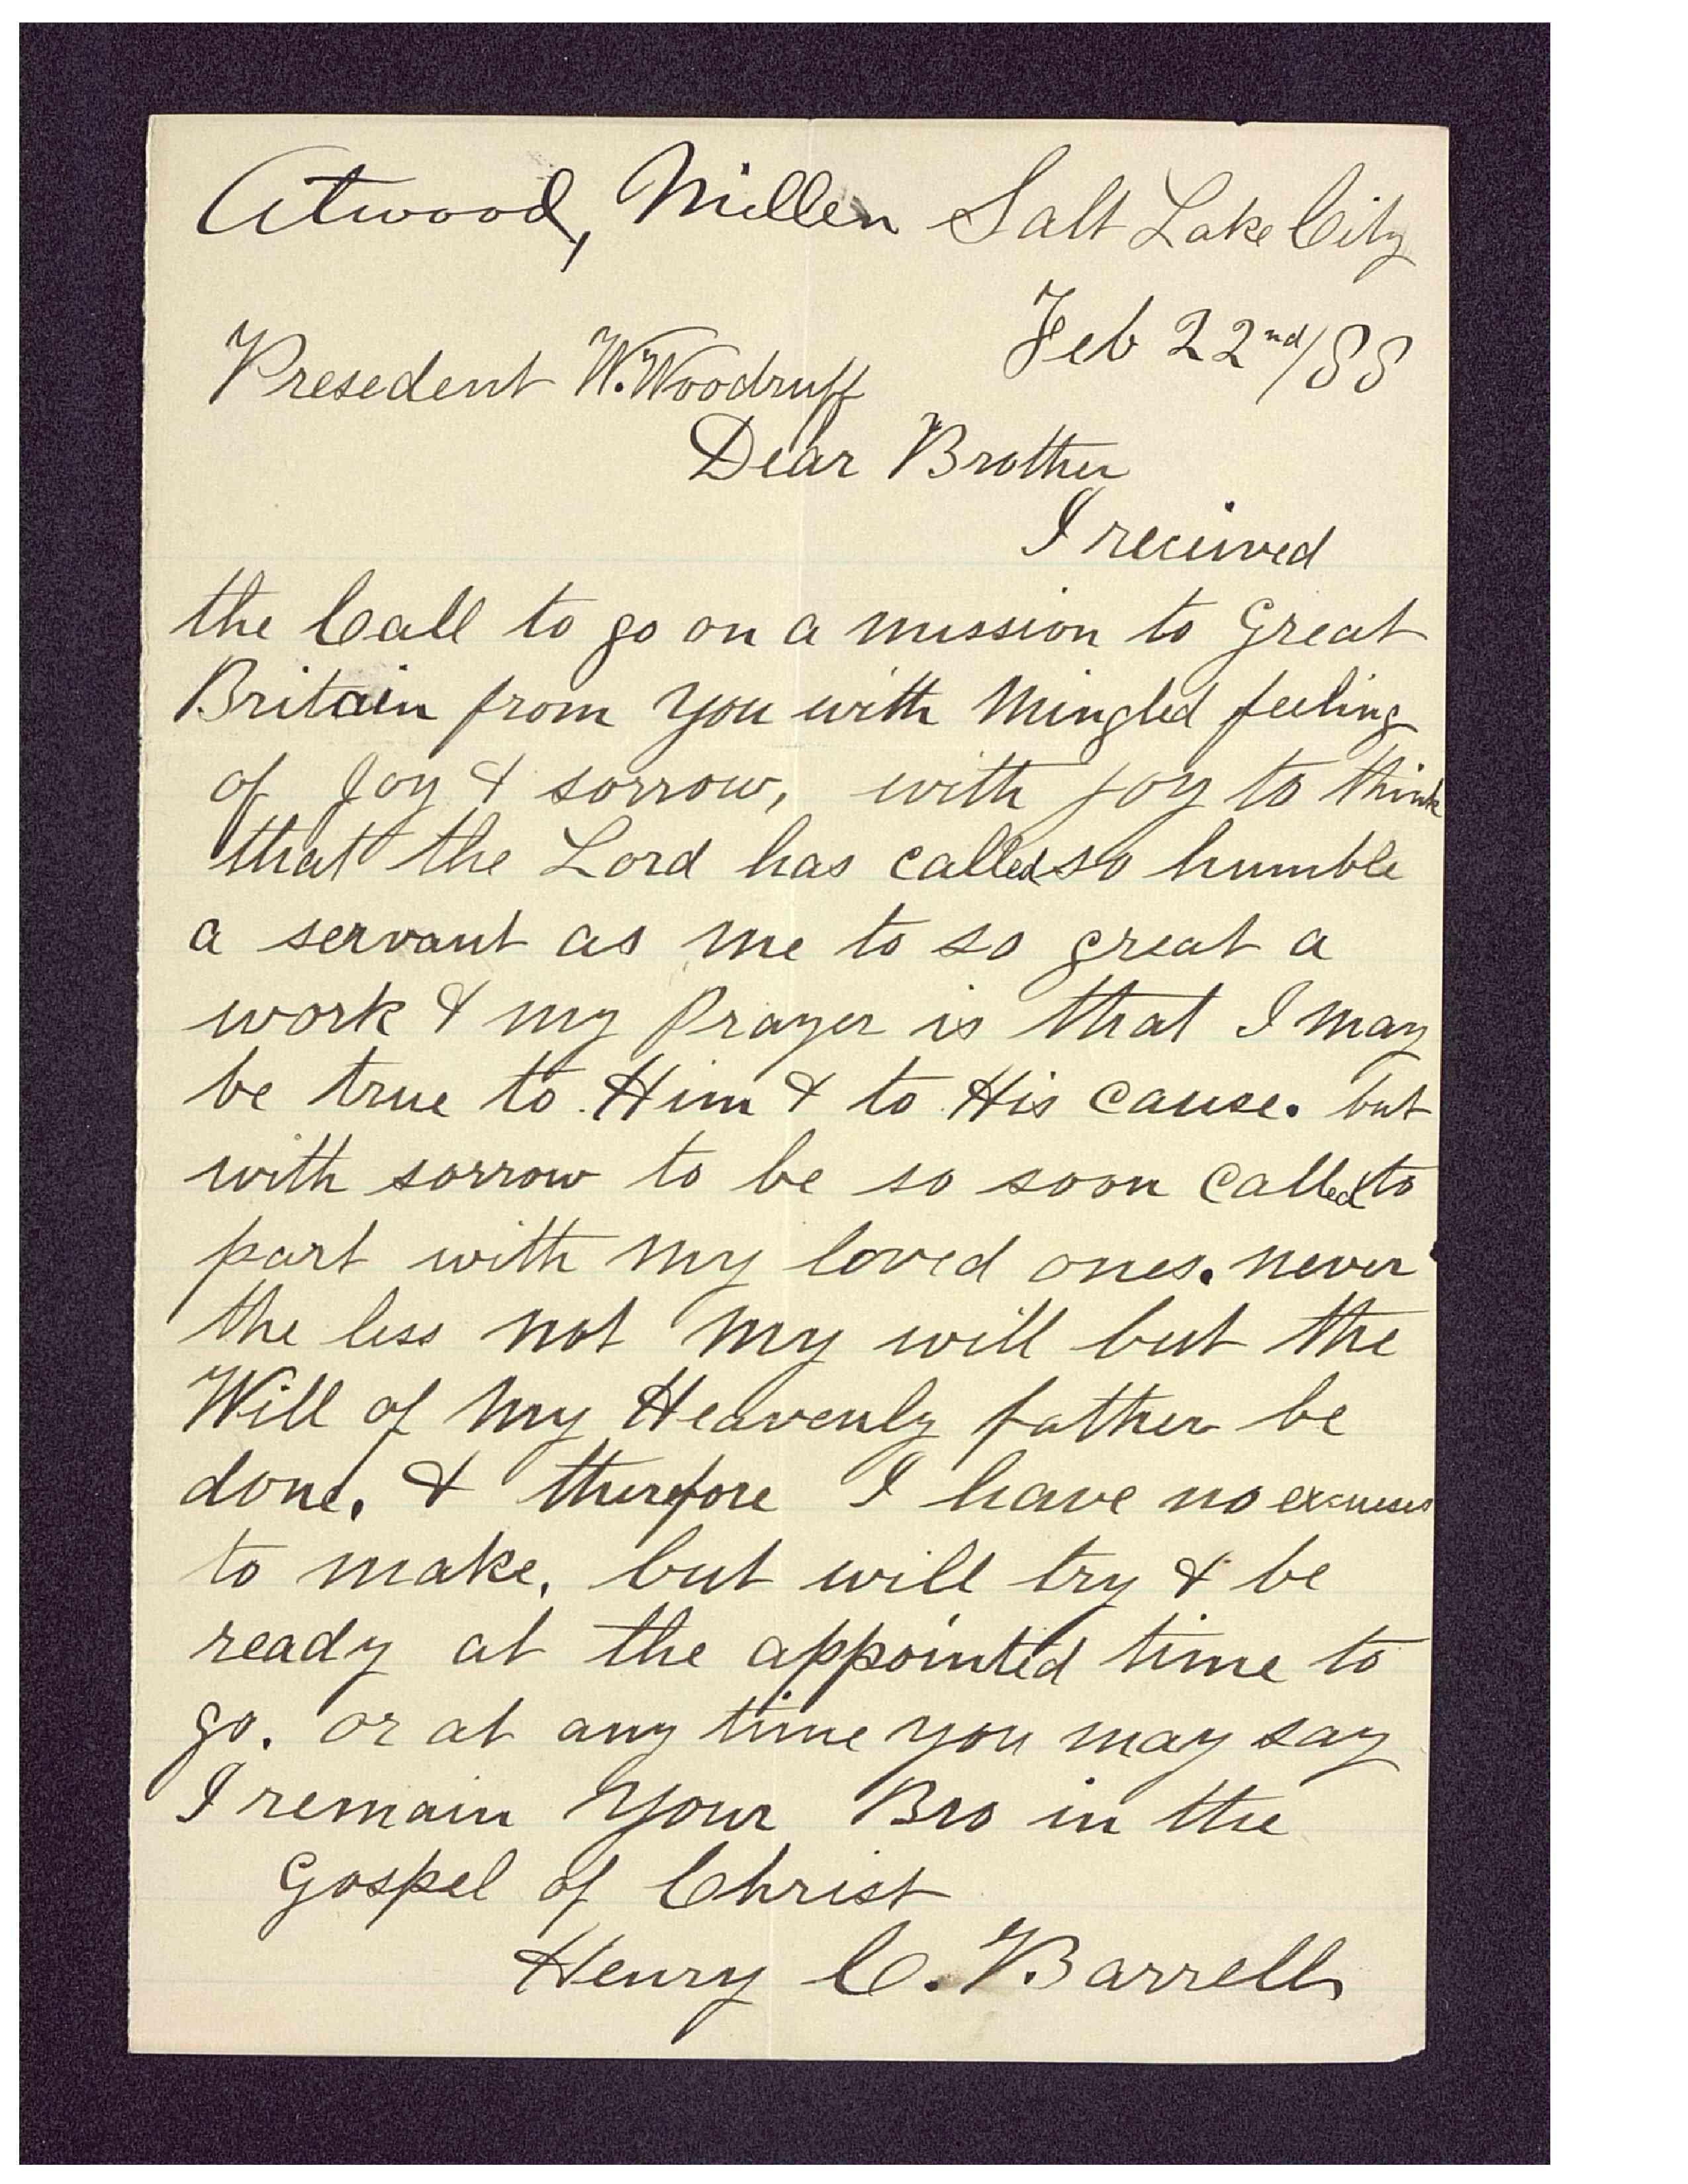 Atwood, Millen Salt Lake City
Feb 22nd/88
Presedent W. Woodruff
Dear Brother
I recieved
the Call to go on a mission to Great
Britain from you with Mingled feeling
of Joy & sorrow, with joy to think
that the Lord has called so humble
a servant as me to so great a
work & my Prayer is that I may
be true to Him & to His cause. but
with sorrow to be so soon called to
part with my loved ones. never
the less not my will but the
Will of My Heavenly father be
done. & therefore I have no excuses
to make, but will try & be
ready at the appointed time to
go. or at any time you may say
I remain Your Bro in the
Gospel of Christ
Henry C. Barrell